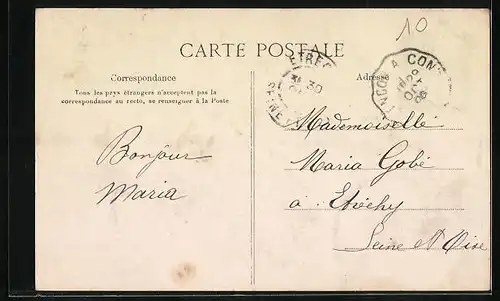 10
CARTE POSTALE
Correspondance
Adresse
Tous les pays étrangers n'acceptent pas la
correspondance au recto, se renseigner à la Poste
ETREC
30
SEINE
A CONT
Bonjour
Maria
Mademoiselle
Maria Gobé
à Etréchy
Seine et Oise